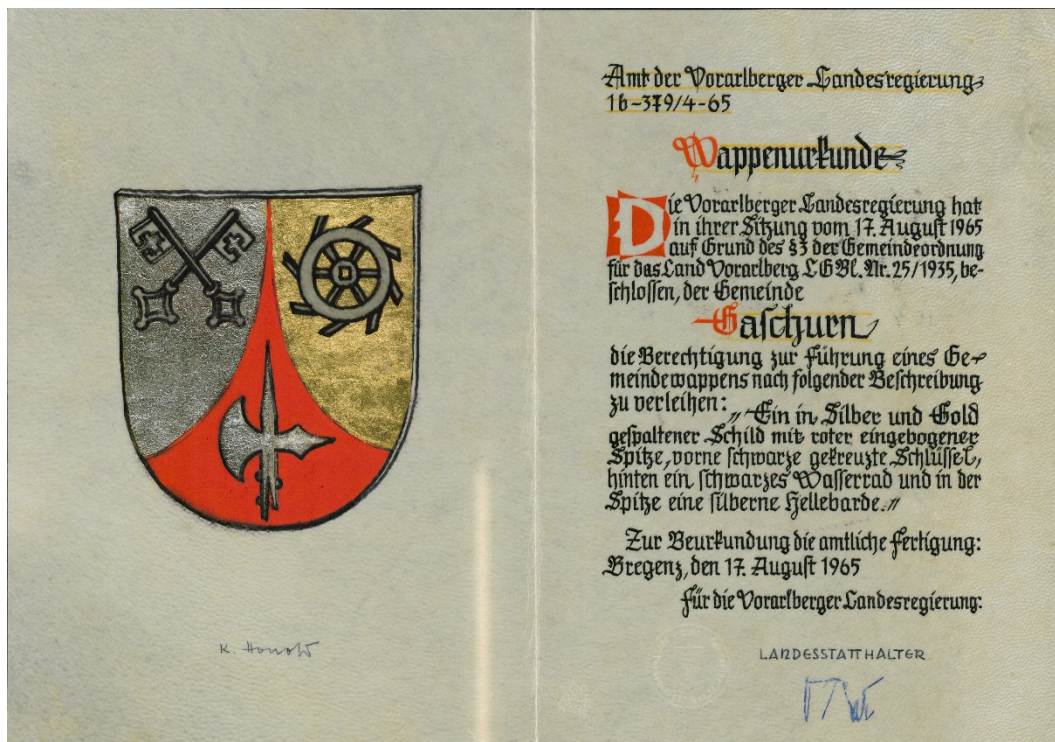 Amt der Vorarlberger Landesregierung
1b-379/4-65
Wappenurkunde
Die Vorarlberger Landesregierung hat
in ihrer Sitzung vom 17. August 1965
auf Grund des §3 der Gemeindeordnung
für das Land Vorarlberg LGBl. Nr. 25/1935, be-
schlossen, der Gemeinde
Gaschurn
die Berechtigung zur Führung eines Ge-
meindewappens nach folgender Beschreibung
zu verleihen: „Ein in Silber und Gold
gespaltener Schild mit roter eingebogener
Spitze, vorne schwarze gekreuzte Schlüssel,
hinten ein schwarzes Wasserrad und in der
Spitze eine silberne Hellebarde."
Zur Beurkundung die amtliche Fertigung:
Bregenz, den 17. August 1965
Für die Vorarlberger Landesregierung:
K. Honold
LANDESSTATTHALTER